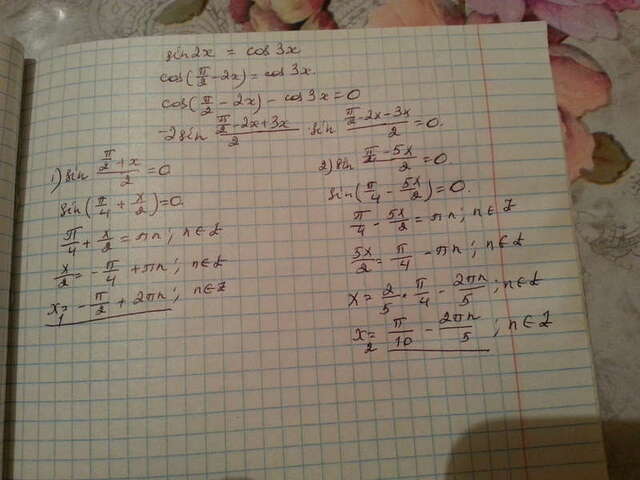 sin2x = cos3x
cos(π/2 - 2x) = cos3x.
cos(π/2 - 2x) - cos3x = 0
-2sin (π/2 - 2x + 3x)/2 · sin (π/2 - 2x - 3x)/2 = 0.
1) sin (π/2 + x)/2 = 0
sin(π/4 + x/2) = 0.
π/4 + x/2 = πn; n∈Z
x/2 = -π/4 + πn; n∈Z
x₁ = -π/2 + 2πn; n∈Z
2) sin (π/2 - 5x)/2 = 0.
sin(π/4 - 5x/2) = 0.
π/4 - 5x/2 = πn; n∈Z
5x/2 = π/4 - πn; n∈Z
x = 2/5 · π/4 - 2πn/5; n∈Z
x₂ = π/10 - 2πn/5; n∈Z